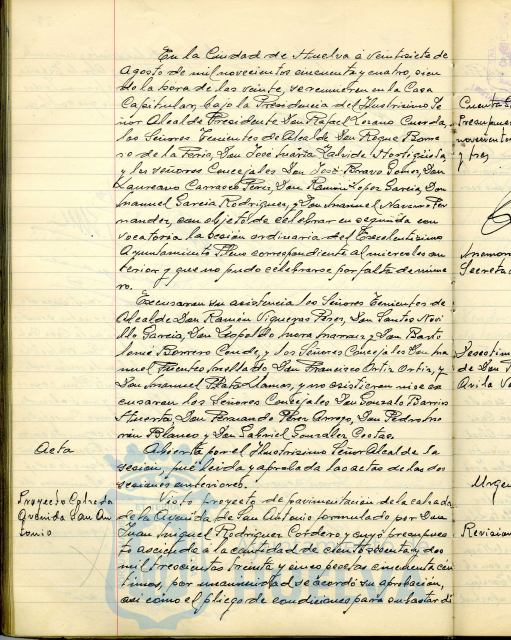 En la Ciudad de Huelva a veintisiete de
Agosto de mil novecientos cincuenta y cuatro, sien
do la hora de las veinte, se reunieron en la Casa
Capitular, bajo la Presidencia del Ilustrisimo Se
ñor Alcalde Presidente Don Rafael Lozano Cuerda,
los Señores Tenientes de Alcalde Don Roque Borre
ro de la Feria, Don José María Zalvide Hostigüela,
y los señores Concejales Don José Bravo Gomez, Don
Laureano Carrasco Perez, Don Ramón Lopez Garcia, Don
Manuel Garcia Rodriguez, y Don Manuel Navarro Fer
nandez, con objeto de celebrar en segunda con
vocatoria la sesión ordinaria del Excelentísimo
Ayuntamiento Pleno correspondiente al miercoles an
terior y que no pudo celebrarse por falta de núme
ro.
Excusaron su asistencia los Señores Tenientes de
Alcalde Don Ramón Vigueras Perez, Don Santos Novi
llo Garcia, Don Leopoldo Mora y Don Barto
lomé Borrero Conde, y los Señores Concejales Don Ma
nuel Fuentes Mellado, Don Francisco Ortiz Ortiz, y
Don Manuel Plata Llamas, y no asistieron ni se ex
cusaron los Señores Concejales Don Gonzalo Barrios
Huerta, Don Fernando Perez Arroyo, Don Pedro Mo
rón Blanes y Don Gabriel Gonzalez Costas.
Acta
Abierta por el Ilustrisimo Señor Alcalde la
sesión, fué leida y aprobada las actas de las dos
sesiones anteriores.
Proyecto Calzada
Avenida San An
tonio
Visto proyecto de pavimentación de la calzada
de la Avenida de San Antonio formulado por Don
Juan Miguel Rodriguez Cordero y cuyo presupues
to asciende a la cantidad de ciento sesenta y dos
mil trescientas treinta y cinco pesetas cincuenta cén
timos, por unanimidad se acordó su aprobación,
así como el pliego de condiciones para subastar di
Cuenta G
Presupues
novecientos
y tres
Secreta
Desestim
de San
Avila
Urgen
Revision